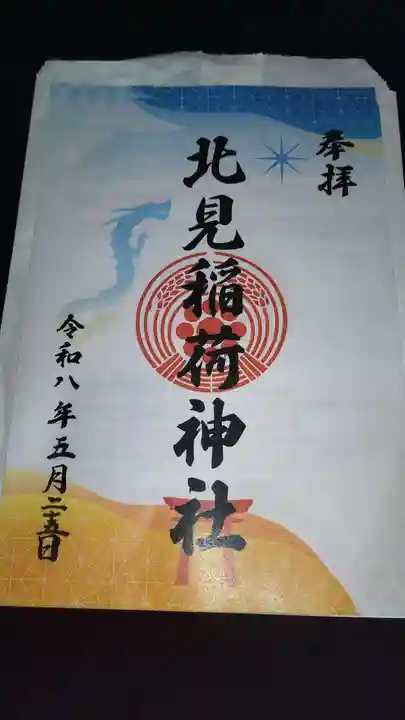 奉拝
北見稲荷神社
令和八年五月二十五日